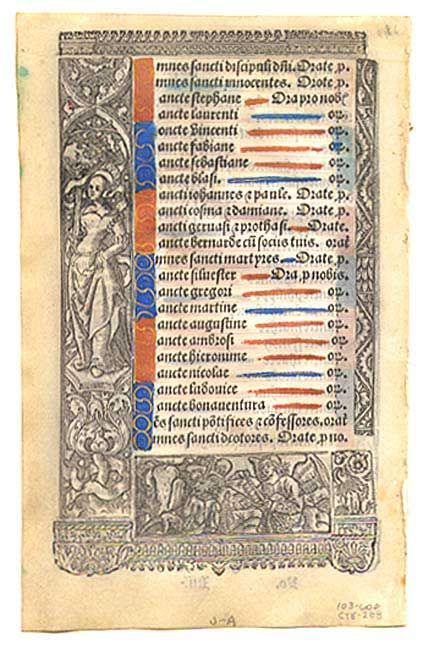 mnes sancti discipuli dñi. Orate, p.
mnes sancti innocentes. Orote, p.
ancte stephane Ora pro nob
ancte laurenti op.
oncte vincenti op.
ancte fabiane op.
ancte sebastiane op.
ancte blasi. op.
ancti iohannes ⁊ paule. Orate, p.
ancti cosma ⁊ damiane. Orate, p.
ancti geruasi ⁊ prothasi. Orate.
ancte bernarde cū sociis tuis. orat
mnes sancti martyres Orate, p.
ancte silvester Ora, p nobis.
ancte gregori op.
ancte martine op.
ancte augustine op.
ancte ambrosi op.
ancte hieronime op.
ancte nicolae op.
ancte ludovice op.
ancte bonaventura op.
ēs sancti pōtifices ⁊ cōfessores. orat
mnes sancti doctores. Orate, p no.
J-A
103-600